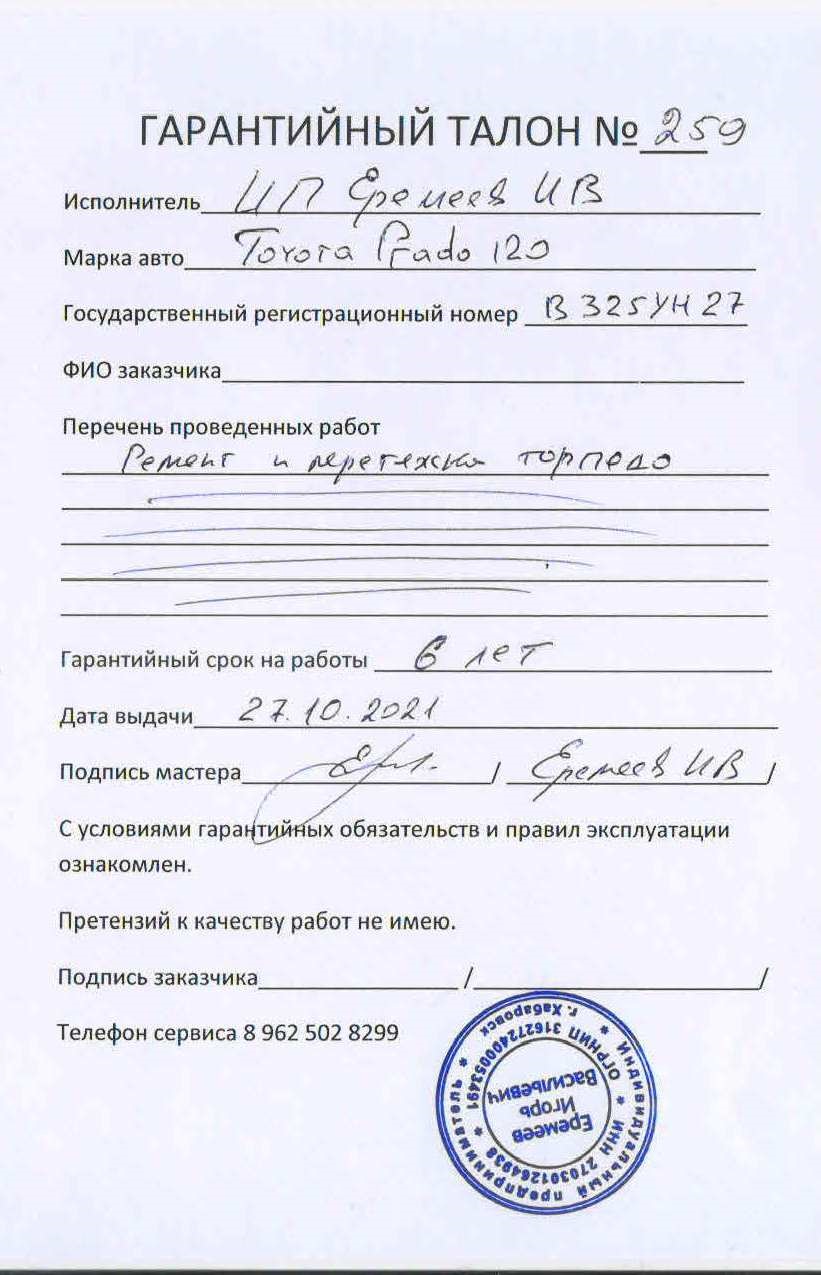 ГАРАНТИЙНЫЙ ТАЛОН № 259
Исполнитель ИП Еремеев ИВ
Марка авто Toyota Prado 120
Государственный регистрационный номер В 325 УН 27
ФИО заказчика
Перечень проведенных работ
Ремонт и перетяжка торпедо
Гарантийный срок на работы 6 лет
Дата выдачи 27.10.2021
Подпись мастера / Еремеев ИВ /
С условиями гарантийных обязательств и правил эксплуатации
ознакомлен.
Претензий к качеству работ не имею.
Подпись заказчика / /
Телефон сервиса 8 962 502 8299
Индивидуальный предприниматель
г. Хабаровск
ОГРНИП 316272400053491
ИНН 270301264938
Еремеев
Игорь
Васильевич